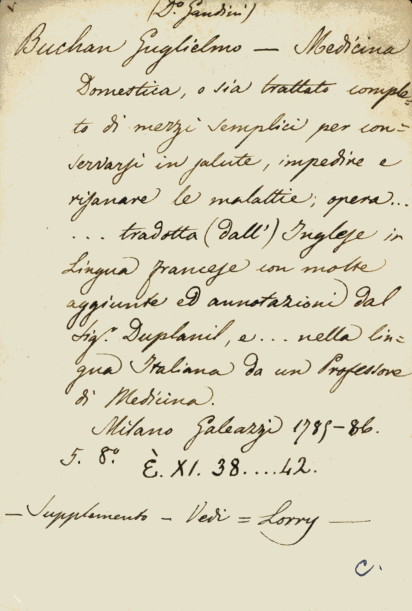 (D.º Gandini)
Buchan Guglielmo — Medicina
Domestica, o sia trattato comple=
to di mezzi semplici per con=
servarsi in salute, impedire e
risanare le malattie; opera...
... tradotta (dall') Inglese in
Lingua francese con molte
aggiunte ed annotazioni dal
Sig.r Duplanil, e... nella lin=
gua Italiana da un Professore
di Medicina.
Milano Galeazzi 1785-86.
5. 8.º È. XI. 38....42.
— Supplemento — Vedi = Lorry —
C.